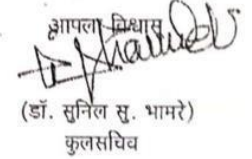 आपला विश्वासू
(डॉ. सुनिल सु. भामरे)
कुलसचिव